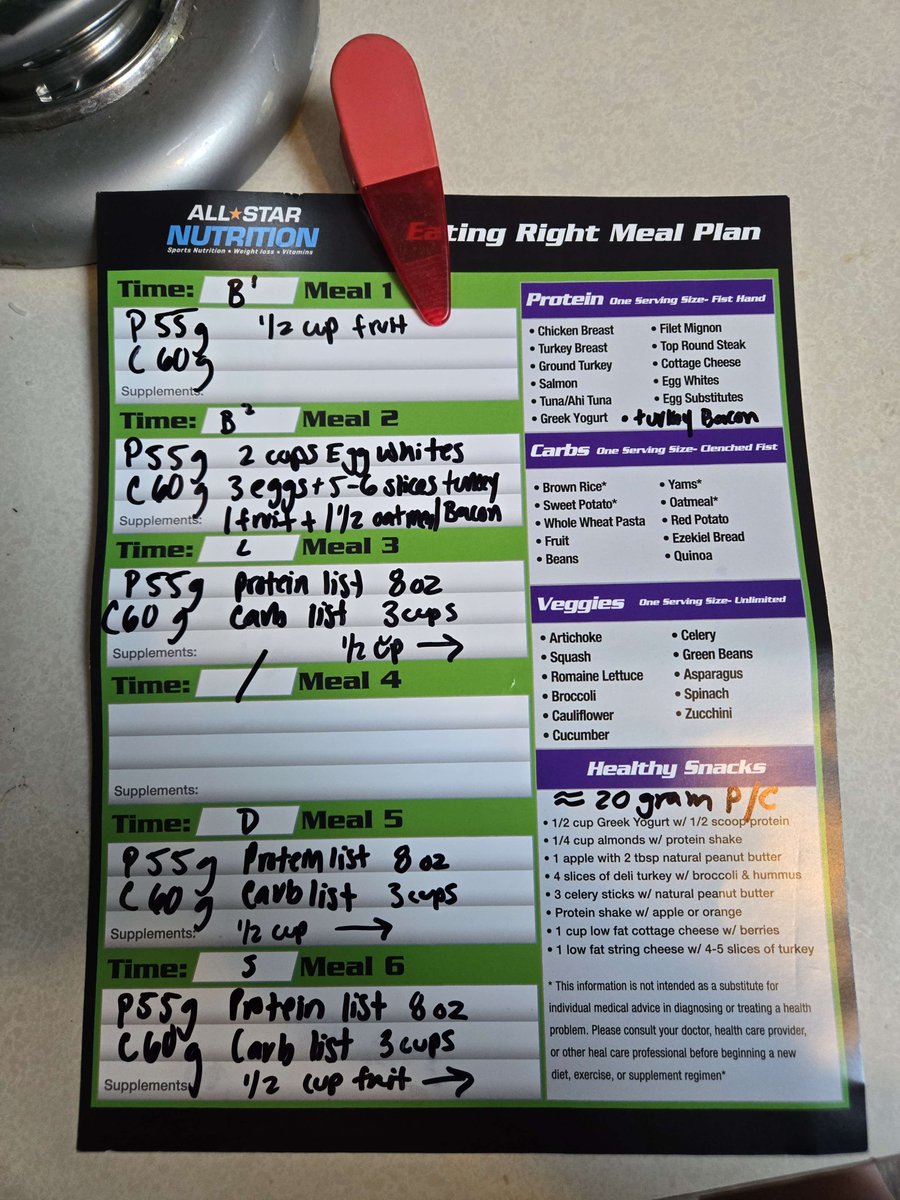 ALL★STAR
NUTRITION
Sports Nutrition • Weight loss • Vitamins
Eating Right Meal Plan
Time: B1 Meal 1
P 55g 1/2 cup fruit
C 60g
Supplements:
Time: B2 Meal 2
P55g 2 cups Egg whites
C 60g 3 eggs + 5-6 slices turkey
Supplements: 1 fruit + 1 1/2 oatmeal/Bacon
Time: L Meal 3
P55g Protein list 8 oz
C60g Carb list 3 cups
Supplements: 1/2 cup →
Time: / Meal 4
Supplements:
Time: D Meal 5
P55g Protein list 8 oz
C 60g Carb list 3 cups
Supplements: 1/2 cup →
Time: S Meal 6
P55g Protein list 8 oz
C60g Carb list 3 cups
Supplements: 1/2 cup fruit →
Protein One Serving Size- Fist Hand
• Chicken Breast
• Turkey Breast
• Ground Turkey
• Salmon
• Tuna/Ahi Tuna
• Greek Yogurt
• Filet Mignon
• Top Round Steak
• Cottage Cheese
• Egg Whites
• Egg Substitutes
• turkey Bacon
Carbs One Serving Size- Clenched Fist
• Brown Rice*
• Sweet Potato*
• Whole Wheat Pasta
• Fruit
• Beans
• Yams*
• Oatmeal*
• Red Potato
• Ezekiel Bread
• Quinoa
Veggies One Serving Size- Unlimited
• Artichoke
• Squash
• Romaine Lettuce
• Broccoli
• Cauliflower
• Cucumber
• Celery
• Green Beans
• Asparagus
• Spinach
• Zucchini
Healthy Snacks
≈ 20 gram P/C
• 1/2 cup Greek Yogurt w/ 1/2 scoop protein
• 1/4 cup almonds w/ protein shake
• 1 apple with 2 tbsp natural peanut butter
• 4 slices of deli turkey w/ broccoli & hummus
• 3 celery sticks w/ natural peanut butter
• Protein shake w/ apple or orange
• 1 cup low fat cottage cheese w/ berries
• 1 low fat string cheese w/ 4-5 slices of turkey
* This information is not intended as a substitute for
individual medical advice in diagnosing or treating a health
problem. Please consult your doctor, health care provider,
or other heal care professional before beginning a new
diet, exercise, or supplement regimen*